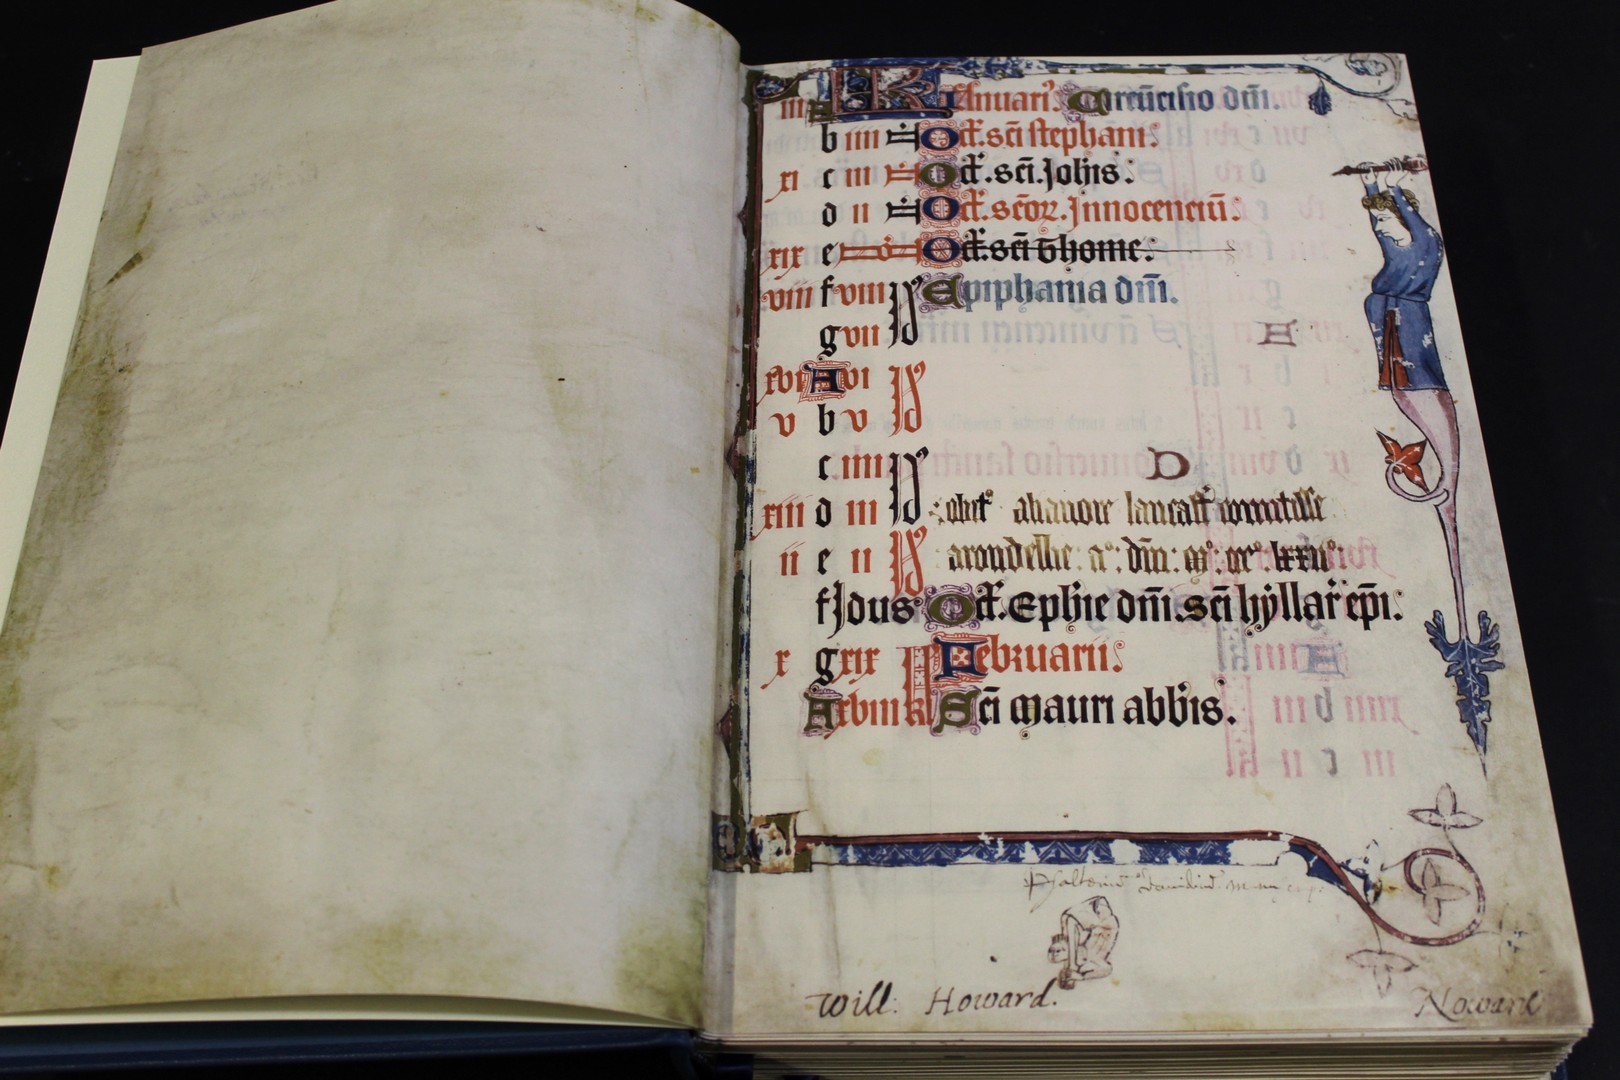 iii A KL Ianuarii. Circūcisio dñi.
b iiii N Oct. sci stephani.
xi c iii N Oct. sci. Johis.
d ii N Oct. scoꝝ. Innocenciū.
xix e No Oct. sci thome.
viii f viii Id Epiphania dñi.
g vii Id
xvi A vi Id
v b v Id
c iiii Id D
xiii d iii Id obit' alianore lancast' comitisse
ii e ii Id arondelle: a°: dñi: m°: ccc°: lxxii°:
f Idus Oct. Ephie dñi. sci hyllar' epi.
x g xix Februarii.
A xviii kl Sci Mauri abbis.
Psalteriū Davidicū
Will: Howard.
Howard